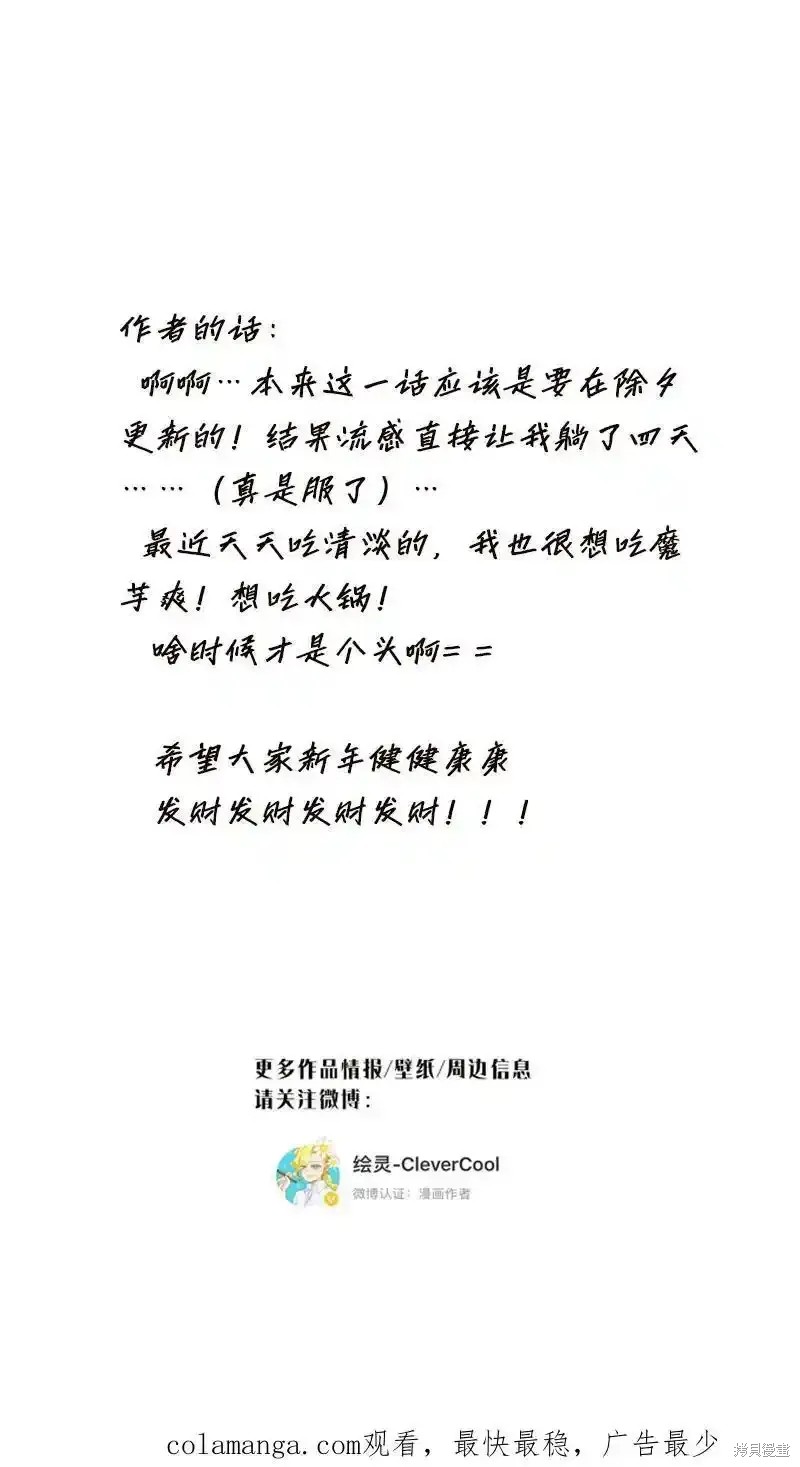 作者的话：
啊啊…本来这一话应该是要在除夕
更新的！结果流感直接让我躺了四天
……（真是服了）…
最近天天吃清淡的，我也很想吃魔
芋爽！想吃火锅！
啥时候才是个头啊==
希望大家新年健健康康
发财发财发财发财！！！
更多作品情报/壁纸/周边信息
请关注微博：
绘灵-CleverCool
微博认证：漫画作者
colamanga.com观看，最快最稳，广告最少
拷貝漫畫